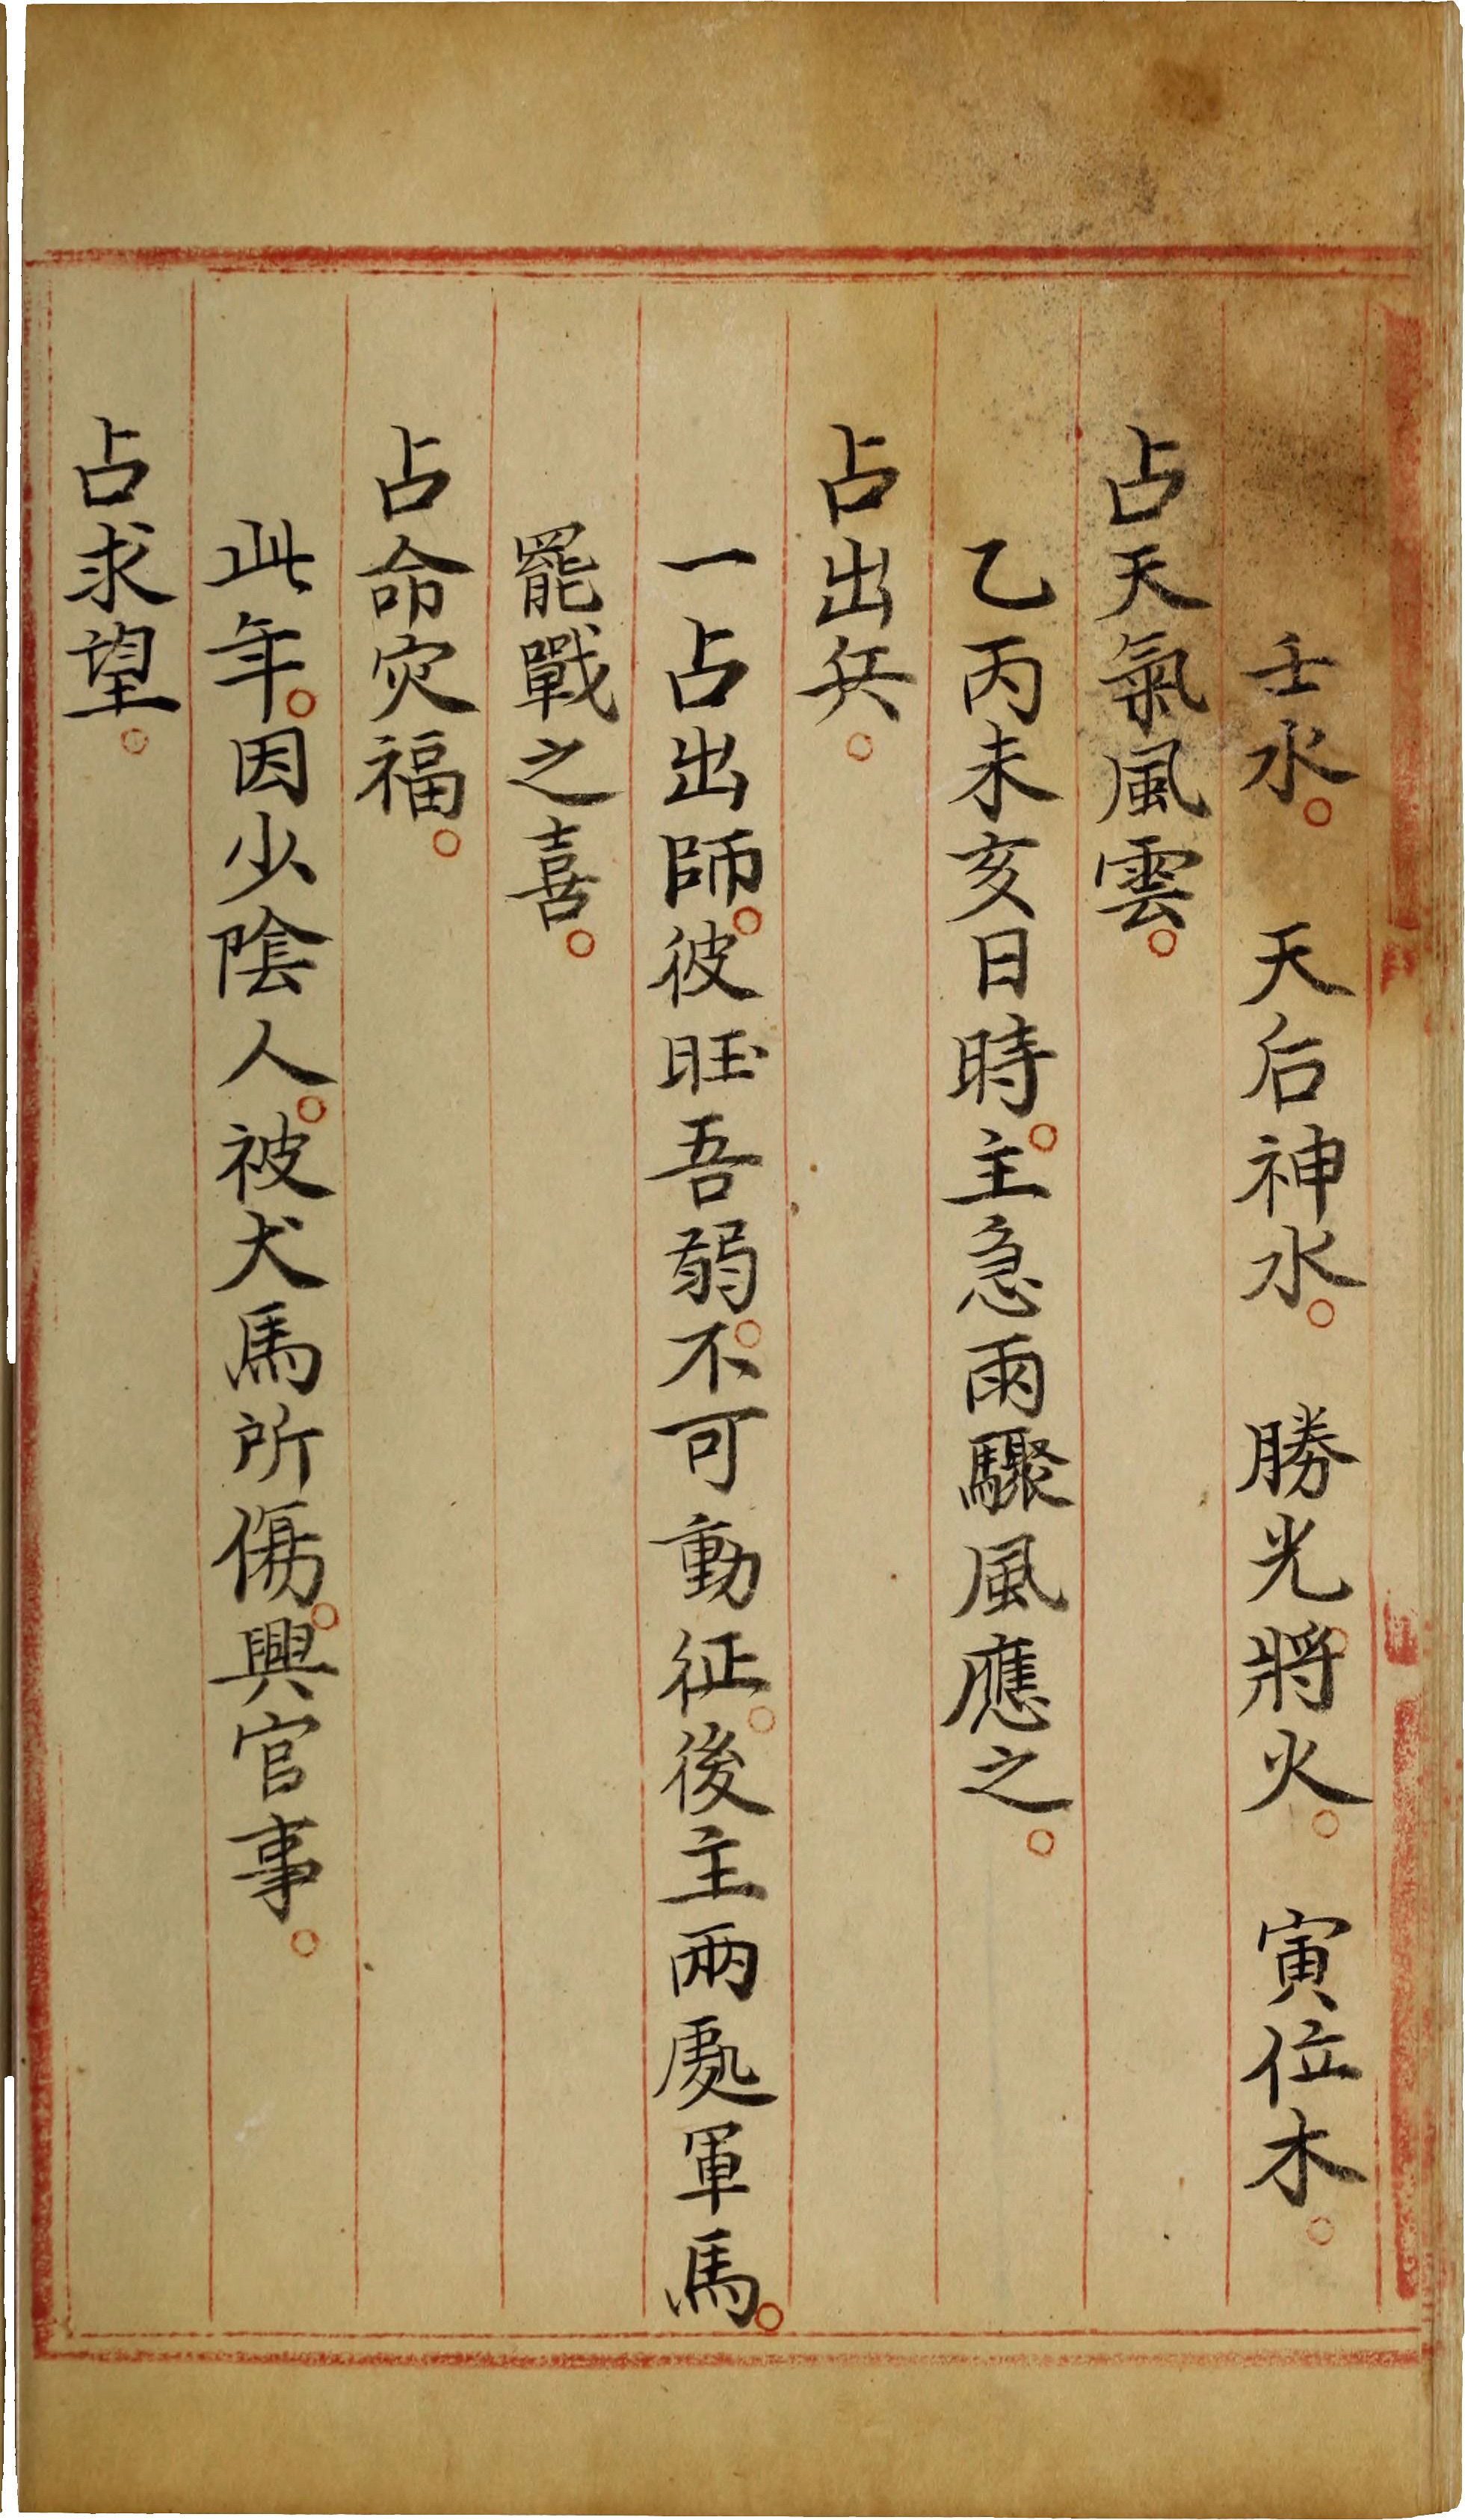 壬水。　天后神水。　勝光將火。　寅位木。
占天氣風雲。
乙丙未亥日時。主急雨驟風應之。
占出兵。
一占出師。彼旺吾弱。不可動征。後主兩處軍馬。
罷戰之喜。
占命灾福。
此年。因少陰人。被犬馬所傷。興官事。
占求望。